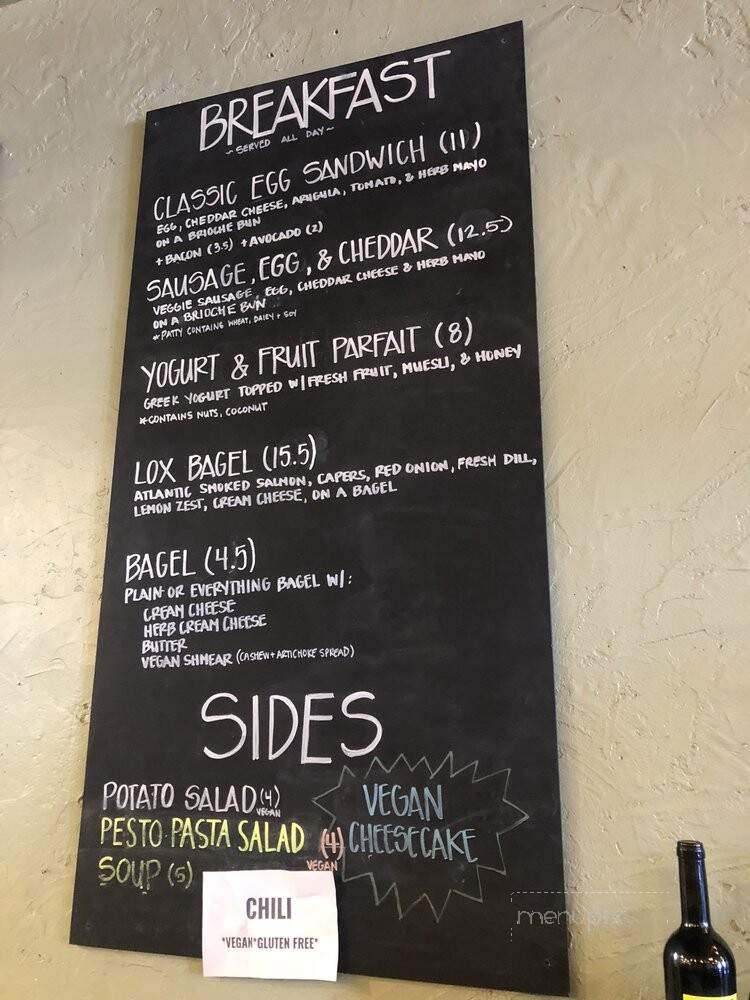 BREAKFAST
~ SERVED ALL DAY ~
CLASSIC EGG SANDWICH (11)
EGG, CHEDDAR CHEESE, ARUGULA, TOMATO, & HERB MAYO
ON A BRIOCHE BUN
+ BACON (3.5) + AVOCADO (2)
SAUSAGE, EGG, & CHEDDAR (12.5)
VEGGIE SAUSAGE, EGG, CHEDDAR CHEESE & HERB MAYO
ON A BRIOCHE BUN
*PATTY CONTAINS WHEAT, DAIRY + SOY
YOGURT & FRUIT PARFAIT (8)
GREEK YOGURT TOPPED W/ FRESH FRUIT, MUESLI, & HONEY
*CONTAINS NUTS, COCONUT
LOX BAGEL (15.5)
ATLANTIC SMOKED SALMON, CAPERS, RED ONION, FRESH DILL,
LEMON ZEST, CREAM CHEESE, ON A BAGEL
BAGEL (4.5)
PLAIN OR EVERYTHING BAGEL W/:
CREAM CHEESE
HERB CREAM CHEESE
BUTTER
VEGAN SHMEAR (CASHEW + ARTICHOKE SPREAD)
SIDES
POTATO SALAD (4)
VEGAN
PESTO PASTA SALAD (4)
VEGAN
SOUP (5)
VEGAN
CHEESECAKE
CHILI
*VEGAN*GLUTEN FREE*